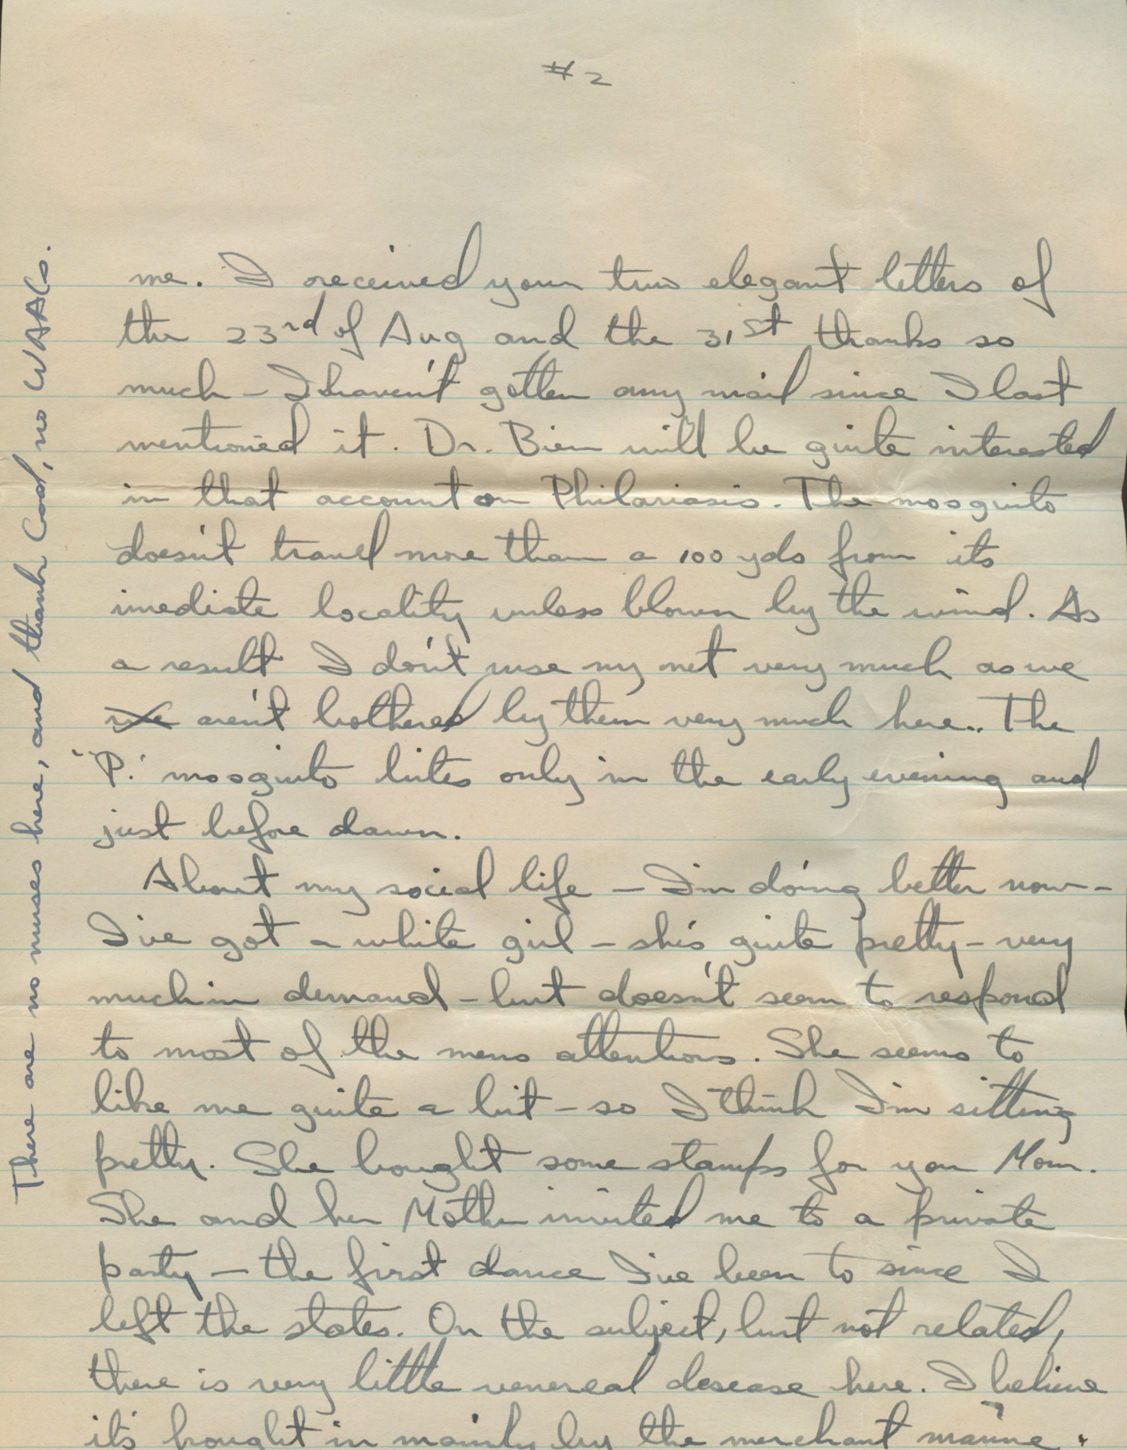 #2
me. I received your two elegant letters of
the 23rd of Aug and the 31st thanks so
much – I haven't gotten any mail since I last
mentioned it. Dr. Bien will be quite interested
in that account on Philariasis. The mosquito
doesn't travel more than a 100 yds from its
imediate locality unless blown by the wind. As
a result I don't use my net very much as we
we aren't bothered by them very much here.. The
"P." mosquito bites only in the early evening and
just before dawn.
About my social life – I'm doing better now –
I've got a white girl – she's quite pretty – very
much in demand – but doesn't seem to respond
to most of the mens attentions. She seems to
like me quite a bit – so I think I'm sitting
pretty. She bought some stamps for you Mom.
She and her Mother invited me to a private
party – the first dance I've been to since I
left the states. On the subject, but not related,
there is very little venereal desease here. I believe
it's brought in mainly by the merchant marine.
There are no nurses here, and thank God, no WAACs.